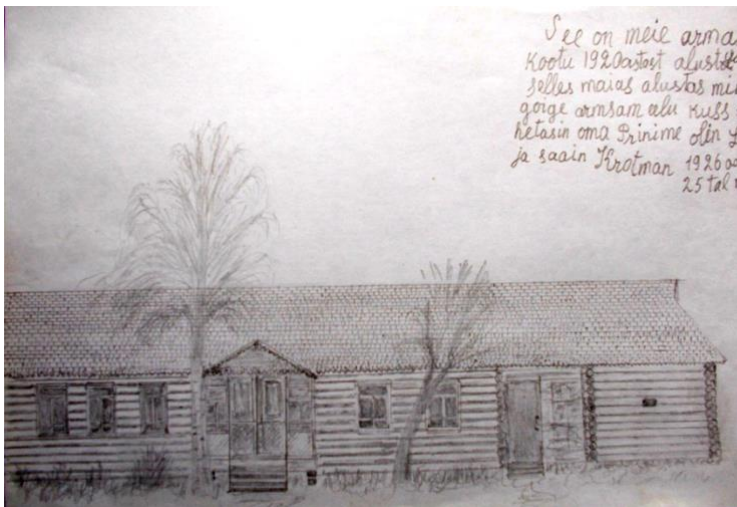 See on meie arma
Kootu 1920aastast alust
selles maias alustas mi
goige armsam elu kuss
hetasin oma Prinime olin
ja saain Krotman 1926 aa
25 tal